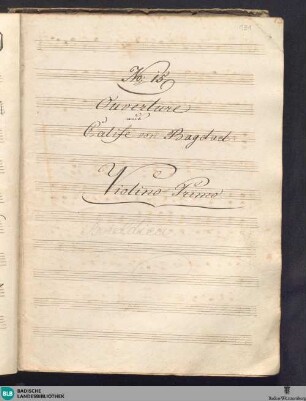 No. 15
Ouverture
aus
Calife von Bagdad
Violino Primo
BLB
BADISCHE
LANDESBIBLIOTHEK
Baden-Württemberg